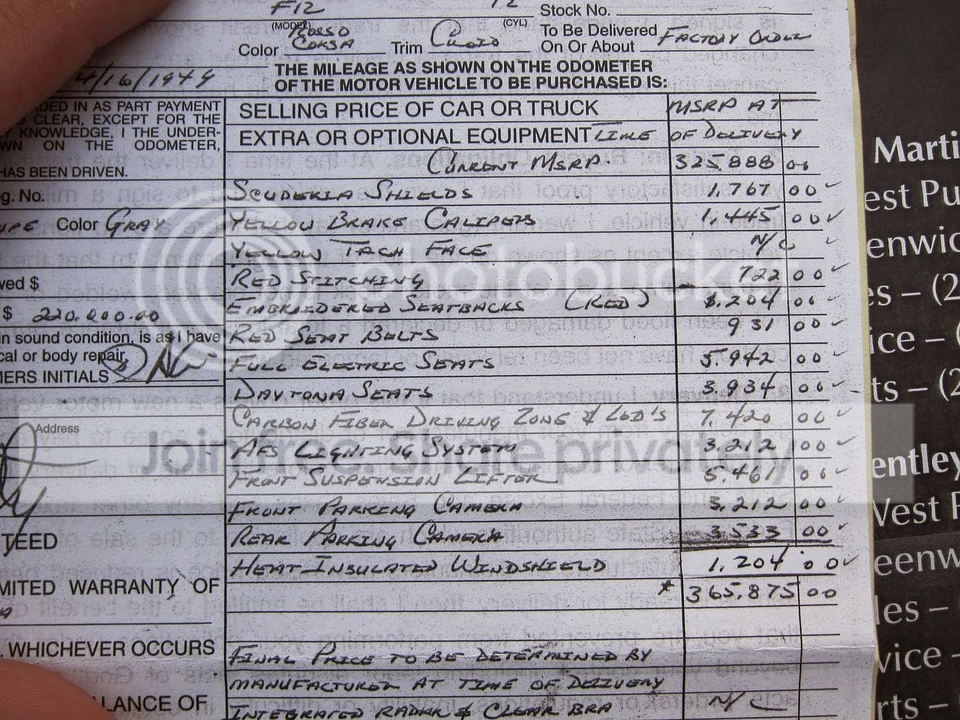 F12
12
Stock No.
(MODEL)
(CYL)
Color Rosso Corsa Trim Cuoio
To Be Delivered On Or About Factory Order
4/16/1949
THE MILEAGE AS SHOWN ON THE ODOMETER
OF THE MOTOR VEHICLE TO BE PURCHASED IS:
ADED IN AS PART PAYMENT
CLEAR, EXCEPT FOR THE
KNOWLEDGE, I THE UNDER-
WN ON THE ODOMETER,
HAS BEEN DRIVEN.
SELLING PRICE OF CAR OR TRUCK MSRP AT
EXTRA OR OPTIONAL EQUIPMENT TIME OF DELIVERY
CURRENT MSRP 325.888 00
g. No.
SCUDERIA SHIELDS 1.767 00
UPE Color GRAY
YELLOW BRAKE CALIPERS 1.445 00
YELLOW TACH FACE N/C
RED STITCHING 722 00
wed $
EMBROIDERED SEATBACKS (RED) 1.204 00
$ 220.000.00
RED SEAT BELTS 931 00
in sound condition, is as I have
cal or body repair.
FULL ELECTRIC SEATS 5.942 00
MERS INITIALS
DAYTONA SEATS 3.934 00
CARBON FIBER DRIVING ZONE & LED'S 7.420 00
Address
AFS LIGHTING SYSTEM 3.212 00
FRONT SUSPENSION LIFTER 5.461 00
FRONT PARKING CAMERA 3.212 00
TEED
REAR PARKING CAMERA 3.533 00
HEAT INSULATED WINDSHIELD 1.204 00
MITED WARRANTY OF
* 365.875 00
. WHICHEVER OCCURS
FINAL PRICE TO BE DETERMINED BY
MANUFACTURER AT TIME OF DELIVERY
ALANCE OF
INTEGRATED RADAR & CLEAR BRA N/C
Marti
est Pu
enwic
es – (2
ice – (
ts – (2
entley
West P
eenw
les –
vice –
rts –
photobucket
Join free. Share privately.